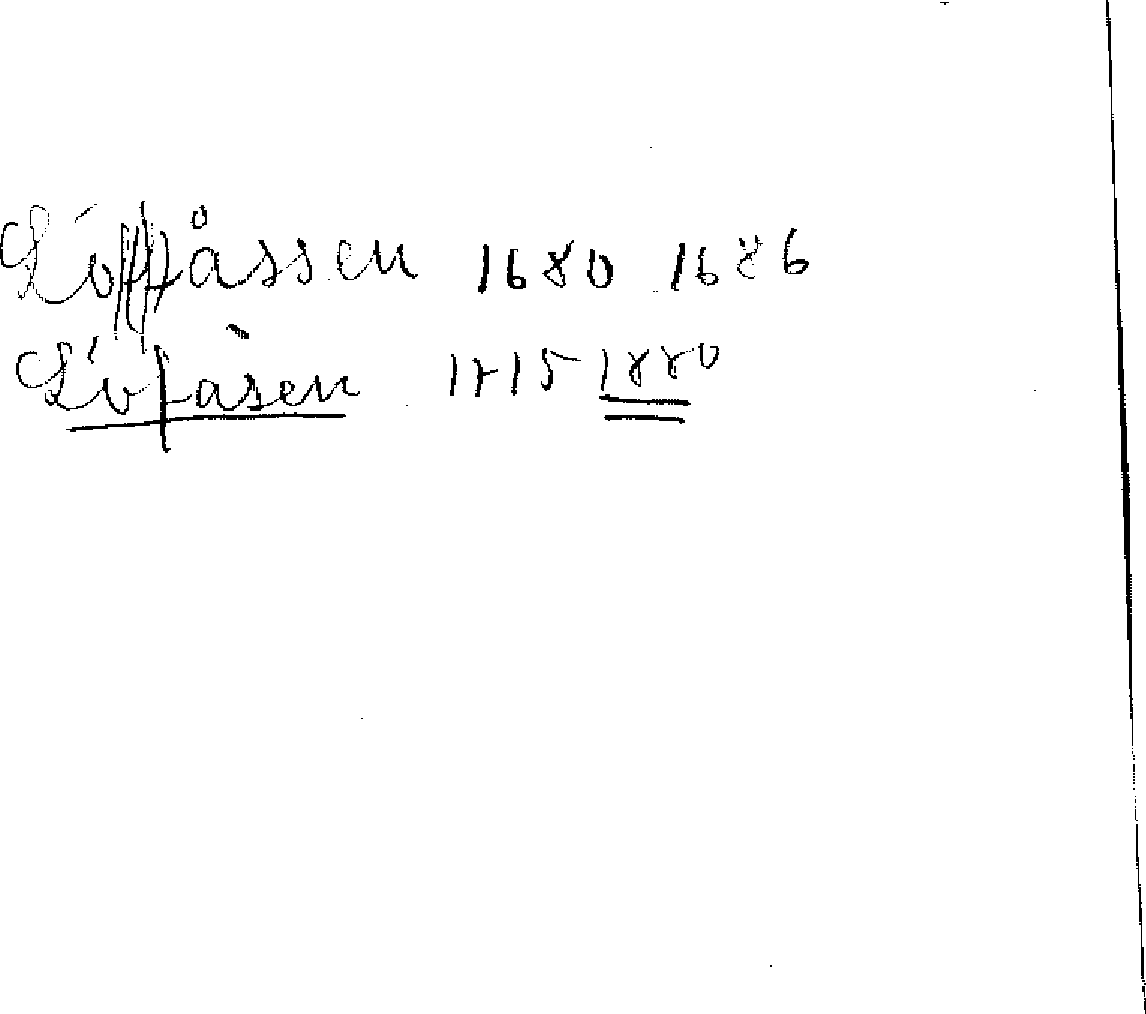 Löffåssen 1680 1686
Löfåsen 1715 1880